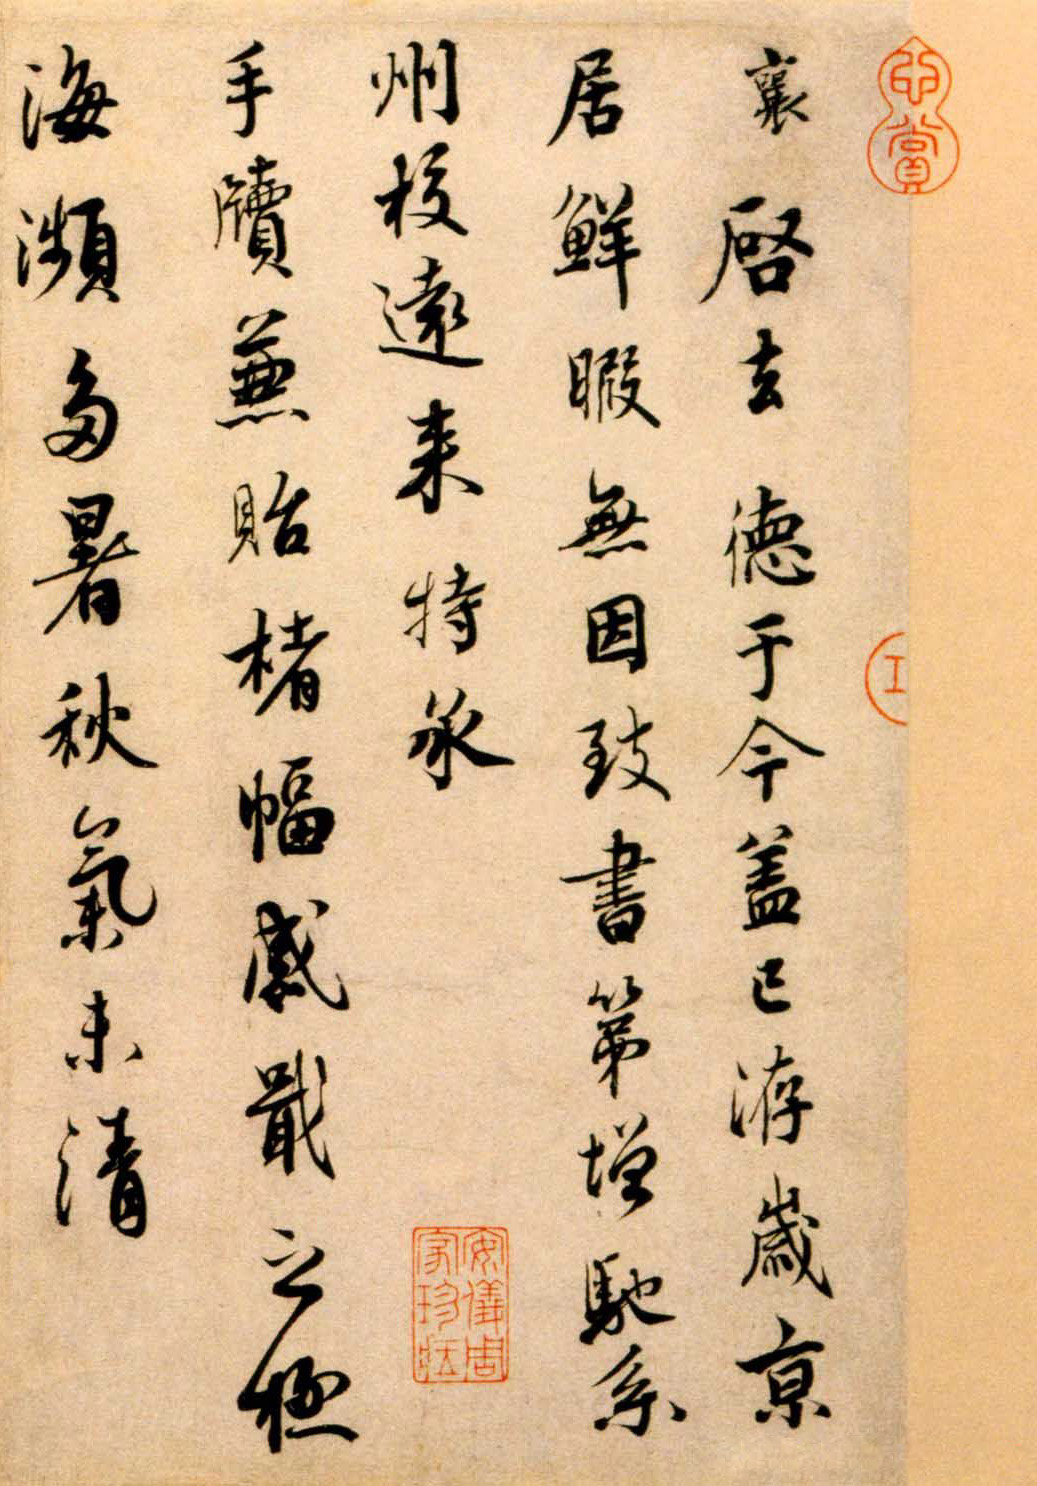 襄啓去德于今盖已洊歲京
居鮮暇無因致書第增馳系
州校遠来特承
手牘兼貽楮幅感戢之極
海瀕多暑秋氣未清
安儀周家珍藏